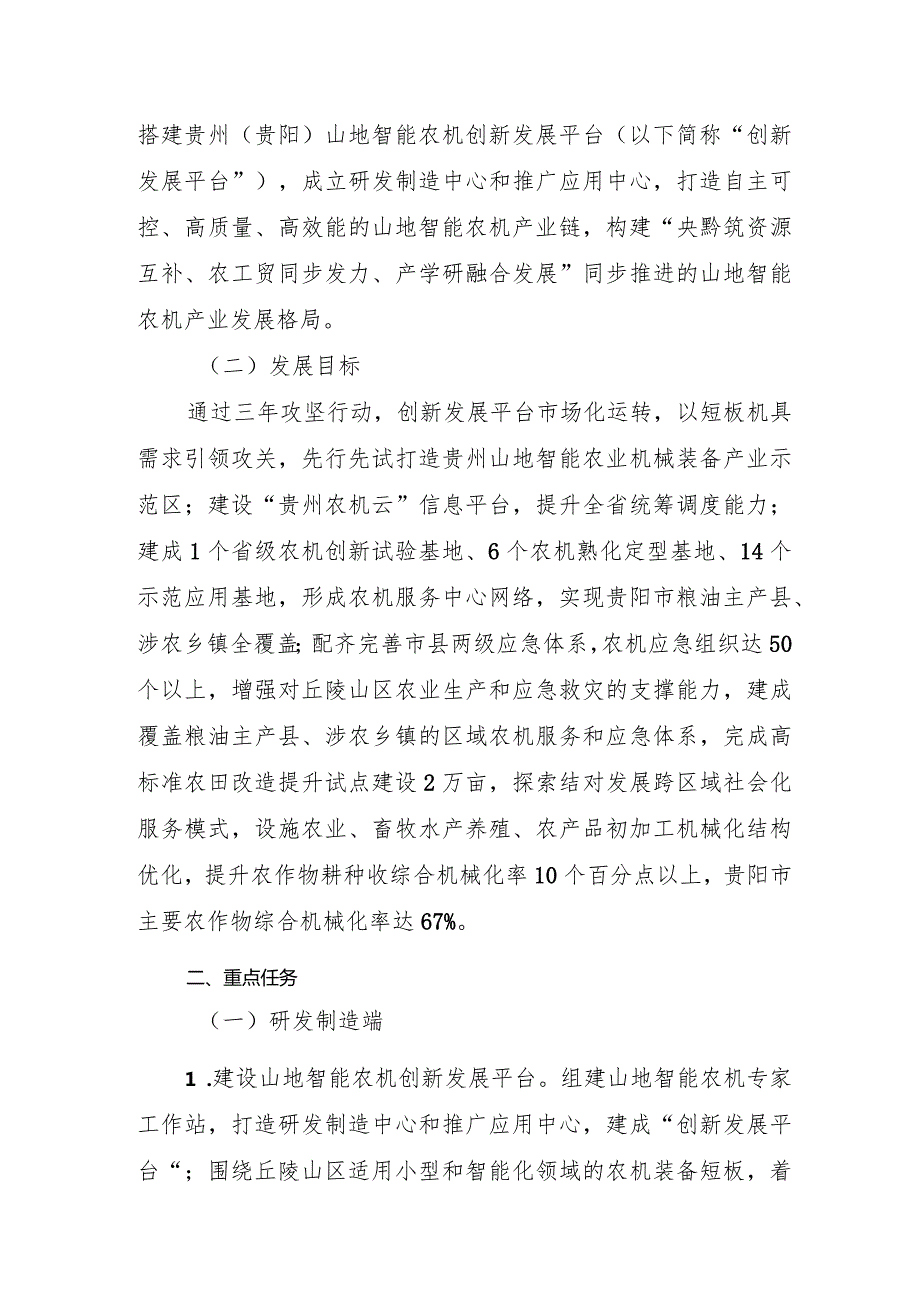 搭建贵州（贵阳）山地智能农机创新发展平台（以下简称“创新
发展平台”），成立研发制造中心和推广应用中心，打造自主可
控、高质量、高效能的山地智能农机产业链，构建“央黔筑资源
互补、农工贸同步发力、产学研融合发展”同步推进的山地智能
农机产业发展格局。
（二）发展目标
通过三年攻坚行动，创新发展平台市场化运转，以短板机具
需求引领攻关，先行先试打造贵州山地智能农业机械装备产业示
范区；建设“贵州农机云”信息平台，提升全省统筹调度能力；
建成 1 个省级农机创新试验基地、6 个农机熟化定型基地、14 个
示范应用基地，形成农机服务中心网络，实现贵阳市粮油主产县、
涉农乡镇全覆盖；配齐完善市县两级应急体系，农机应急组织达 50
个以上，增强对丘陵山区农业生产和应急救灾的支撑能力，建成
覆盖粮油主产县、涉农乡镇的区域农机服务和应急体系，完成高
标准农田改造提升试点建设 2 万亩，探索结对发展跨区域社会化
服务模式，设施农业、畜牧水产养殖、农产品初加工机械化结构
优化，提升农作物耕种收综合机械化率 10 个百分点以上，贵阳市
主要农作物综合机械化率达 67%。
二、重点任务
（一）研发制造端
1 .建设山地智能农机创新发展平台。组建山地智能农机专家
工作站，打造研发制造中心和推广应用中心，建成“创新发展平
台“；围绕丘陵山区适用小型和智能化领域的农机装备短板，着